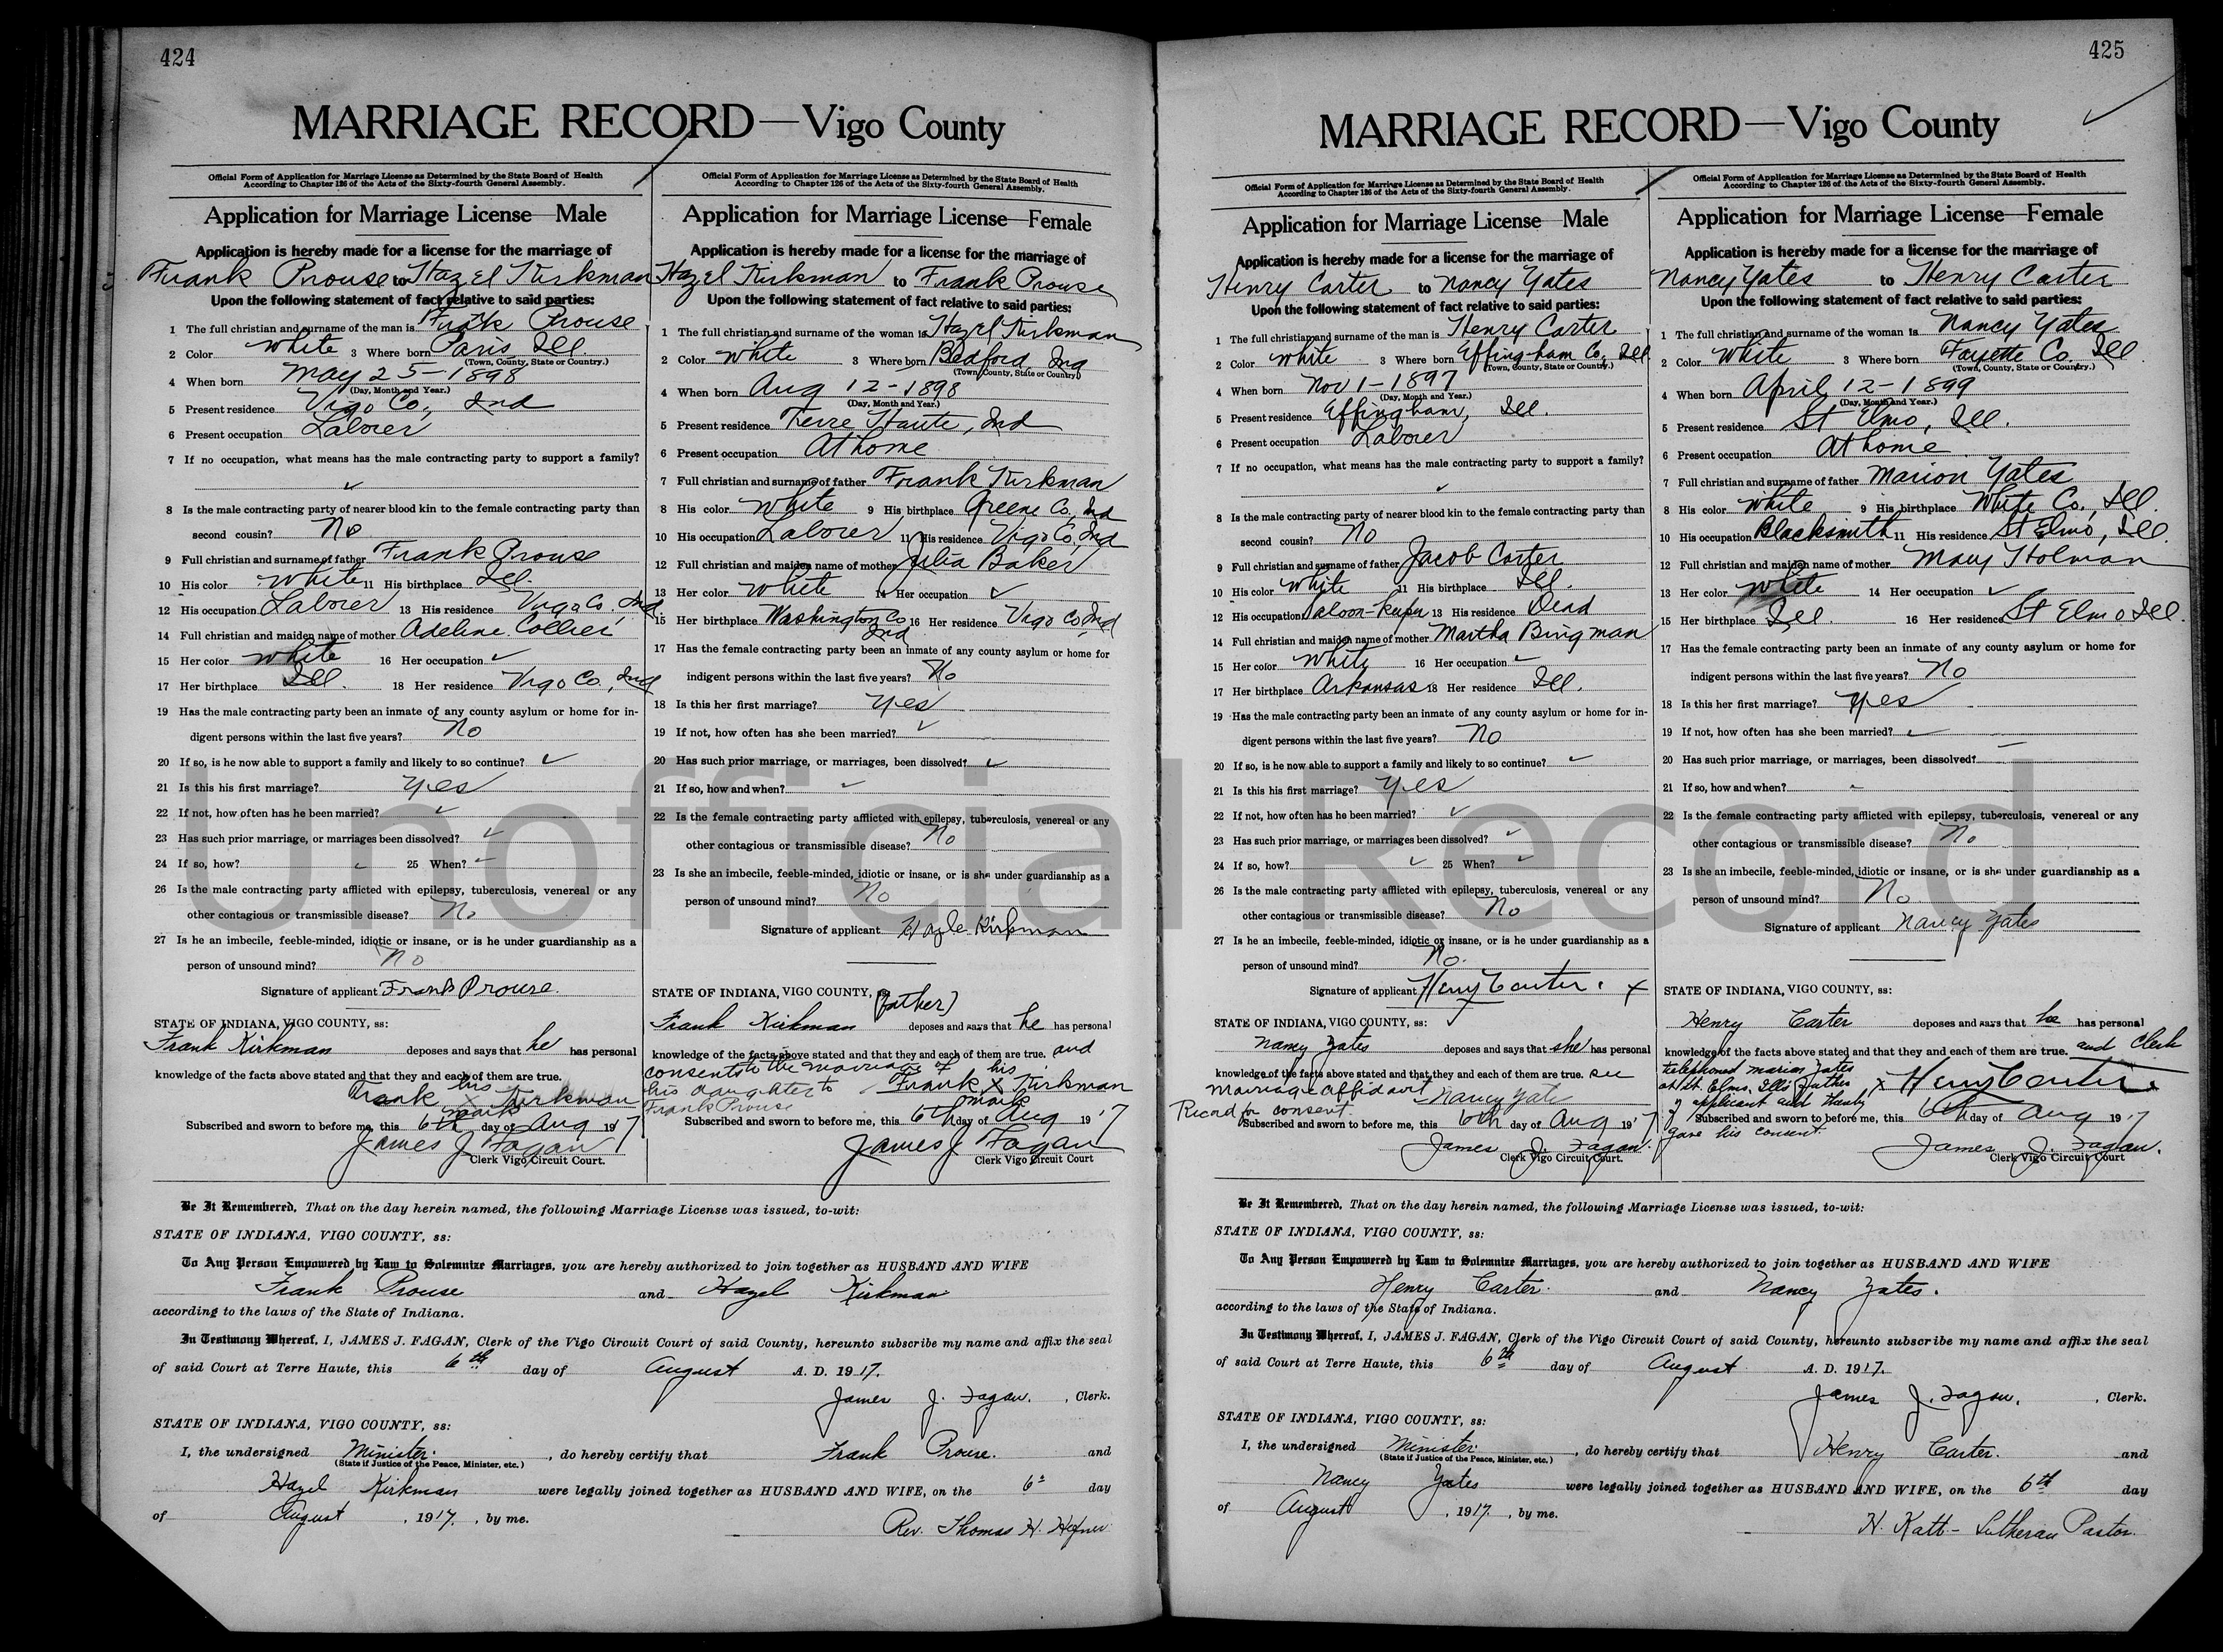 424
MARRIAGE RECORD—Vigo County
Official Form of Application for Marriage License as Determined by the State Board of Health
According to Chapter 126 of the Acts of the Sixty-fourth General Assembly.
Application for Marriage License—Male
Application is hereby made for a license for the marriage of
Frank Prouse to Hazel Kirkman
Upon the following statement of fact relative to said parties:
1 The full christian and surname of the man is Frank Prouse
2 Color White 3 Where born Paris, Ill.
(Town, County, State or Country.)
4 When born May 25-1898
(Day, Month and Year.)
5 Present residence Vigo Co., Ind
6 Present occupation Laborer
7 If no occupation, what means has the male contracting party to support a family?
✓
8 Is the male contracting party of nearer blood kin to the female contracting party than
second cousin? No
9 Full christian and surname of father Frank Prouse
10 His color White 11 His birthplace Ill.
12 His occupation Laborer 13 His residence Vigo Co, Ind
14 Full christian and maiden name of mother Adeline Collier
15 Her color White 16 Her occupation ✓
17 Her birthplace Ill. 18 Her residence Vigo Co., Ind
19 Has the male contracting party been an inmate of any county asylum or home for in-
digent persons within the last five years? No
20 If so, is he now able to support a family and likely to so continue? ✓
21 Is this his first marriage? Yes
22 If not, how often has he been married? ✓
23 Has such prior marriage, or marriages been dissolved? ✓
24 If so, how? ✓ 25 When? ✓
26 Is the male contracting party afflicted with epilepsy, tuberculosis, venereal or any
other contagious or transmissible disease? No
27 Is he an imbecile, feeble-minded, idiotic or insane, or is he under guardianship as a
person of unsound mind? No
Signature of applicant Frank Prouse.
STATE OF INDIANA, VIGO COUNTY, ss:
Frank Kirkman deposes and says that he has personal
knowledge of the facts above stated and that they and each of them are true.
his
Frank X Kirkman
mark
Subscribed and sworn to before me, this 6th day of Aug 1917
James J. Fagan
Clerk Vigo Circuit Court.
Official Form of Application for Marriage License as Determined by the State Board of Health
According to Chapter 126 of the Acts of the Sixty-fourth General Assembly.
Application for Marriage License—Female
Application is hereby made for a license for the marriage of
Hazel Kirkman to Frank Prouse
Upon the following statement of fact relative to said parties:
1 The full christian and surname of the woman is Hazel Kirkman
2 Color White 3 Where born Bedford, Ind
(Town, County, State or Country)
4 When born Aug 12-1898
(Day, Month and Year.)
5 Present residence Terre Haute, Ind
6 Present occupation At home
7 Full christian and surname of father Frank Kirkman
8 His color White 9 His birthplace Greene Co, Ind
10 His occupation Laborer 11 His residence Vigo Co, Ind
12 Full christian and maiden name of mother Julia Baker
13 Her color White 14 Her occupation ✓
15 Her birthplace Washington Co Ind 16 Her residence Vigo Co Ind
17 Has the female contracting party been an inmate of any county asylum or home for
indigent persons within the last five years? No
18 Is this her first marriage? Yes
19 If not, how often has she been married? ✓
20 Has such prior marriage, or marriages, been dissolved? ✓
21 If so, how and when? ✓
22 Is the female contracting party afflicted with epilepsy, tuberculosis, venereal or any
other contagious or transmissible disease? No
23 Is she an imbecile, feeble-minded, idiotic or insane, or is she under guardianship as a
person of unsound mind? No
Signature of applicant Hazle Kirkman
STATE OF INDIANA, VIGO COUNTY, ss:
(Father)
Frank Kirkman deposes and says that he has personal
knowledge of the facts above stated and that they and each of them are true. and
consents to the marriage of
his daughter to
Frank Prouse
his
Frank X Kirkman
mark
Subscribed and sworn to before me, this 6th day of Aug 1917
James J. Fagan
Clerk Vigo Circuit Court
Be It Remembered, That on the day herein named, the following Marriage License was issued, to-wit:
STATE OF INDIANA, VIGO COUNTY, ss:
To Any Person Empowered by Law to Solemnize Marriages, you are hereby authorized to join together as HUSBAND AND WIFE
Frank Prouse and Hazel Kirkman
according to the laws of the State of Indiana.
In Testimony Whereof, I, JAMES J. FAGAN, Clerk of the Vigo Circuit Court of said County, hereunto subscribe my name and affix the seal
of said Court at Terre Haute, this 6th day of August A. D. 1917.
James J. Fagan. , Clerk.
STATE OF INDIANA, VIGO COUNTY, ss:
I, the undersigned Minister , do hereby certify that Frank Prouse. and
(State if Justice of the Peace, Minister, etc.)
Hazel Kirkman were legally joined together as HUSBAND AND WIFE, on the 6" day
of August , 1917. , by me.
Rev. Thomas H. Hefner
425
MARRIAGE RECORD—Vigo County
Official Form of Application for Marriage License as Determined by the State Board of Health
According to Chapter 126 of the Acts of the Sixty-fourth General Assembly.
Application for Marriage License—Male
Application is hereby made for a license for the marriage of
Henry Carter to Nancy Yates
Upon the following statement of fact relative to said parties:
1 The full christian and surname of the man is Henry Carter
2 Color White 3 Where born Effingham Co, Ill
(Town, County, State or Country.)
4 When born Nov 1-1897
(Day, Month and Year.)
5 Present residence Effingham, Ill.
6 Present occupation Laborer
7 If no occupation, what means has the male contracting party to support a family?
✓
8 Is the male contracting party of nearer blood kin to the female contracting party than
second cousin? No
9 Full christian and surname of father Jacob Carter
10 His color White 11 His birthplace Ill.
12 His occupation Saloon-keeper 13 His residence Dead
14 Full christian and maiden name of mother Martha Bingman
15 Her color White 16 Her occupation ✓
17 Her birthplace Arkansas 18 Her residence Ill.
19 Has the male contracting party been an inmate of any county asylum or home for in-
digent persons within the last five years? No
20 If so, is he now able to support a family and likely to so continue? ✓
21 Is this his first marriage? Yes
22 If not, how often has he been married? ✓
23 Has such prior marriage, or marriages been dissolved? ✓
24 If so, how? ✓ 25 When? ✓
26 Is the male contracting party afflicted with epilepsy, tuberculosis, venereal or any
other contagious or transmissible disease? No
27 Is he an imbecile, feeble-minded, idiotic or insane, or is he under guardianship as a
person of unsound mind? No.
Signature of applicant Henry Carter. X
STATE OF INDIANA, VIGO COUNTY, ss:
Nancy Yates deposes and says that she has personal
knowledge of the facts above stated and that they and each of them are true. see
marriage affidavit
Record for consent.
Nancy Yates
Subscribed and sworn to before me, this 6th day of Aug 1917
James J. Fagan.
Clerk Vigo Circuit Court.
Official Form of Application for Marriage License as Determined by the State Board of Health
According to Chapter 126 of the Acts of the Sixty-fourth General Assembly.
Application for Marriage License—Female
Application is hereby made for a license for the marriage of
Nancy Yates to Henry Carter
Upon the following statement of fact relative to said parties:
1 The full christian and surname of the woman is Nancy Yates
2 Color White 3 Where born Fayette Co. Ill
(Town, County, State or Country.)
4 When born April 12-1899
(Day, Month and Year.)
5 Present residence St Elmo, Ill.
6 Present occupation At home
7 Full christian and surname of father Marion Yates
8 His color White 9 His birthplace White Co., Ill.
10 His occupation Blacksmith 11 His residence St Elmo, Ill.
12 Full christian and maiden name of mother Mary Holman
13 Her color White 14 Her occupation ✓
15 Her birthplace Ill. 16 Her residence St Elmo Ill.
17 Has the female contracting party been an inmate of any county asylum or home for
indigent persons within the last five years? No
18 Is this her first marriage? Yes
19 If not, how often has she been married? ✓
20 Has such prior marriage, or marriages, been dissolved?
21 If so, how and when?
22 Is the female contracting party afflicted with epilepsy, tuberculosis, venereal or any
other contagious or transmissible disease? No
23 Is she an imbecile, feeble-minded, idiotic or insane, or is she under guardianship as a
person of unsound mind? No
Signature of applicant Nancy Yates
STATE OF INDIANA, VIGO COUNTY, ss:
Henry Carter deposes and says that he has personal
knowledge of the facts above stated and that they and each of them are true. and Clerk
telephoned Marion Yates
at St. Elmo, Ills father
of applicant and thereby
gave his consent.
X Henry Carter
Subscribed and sworn to before me, this 6th day of Aug 1917
James J. Fagan.
Clerk Vigo Circuit Court
Be It Remembered, That on the day herein named, the following Marriage License was issued, to-wit:
STATE OF INDIANA, VIGO COUNTY, ss:
To Any Person Empowered by Law to Solemnize Marriages, you are hereby authorized to join together as HUSBAND AND WIFE
Henry Carter. and Nancy Yates.
according to the laws of the State of Indiana.
In Testimony Whereof, I, JAMES J. FAGAN, Clerk of the Vigo Circuit Court of said County, hereunto subscribe my name and affix the seal
of said Court at Terre Haute, this 6th day of August A. D. 1917.
James J. Fagan. , Clerk.
STATE OF INDIANA, VIGO COUNTY, ss:
I, the undersigned Minister , do hereby certify that Henry Carter. and
(State if Justice of the Peace, Minister, etc.)
Nancy Yates were legally joined together as HUSBAND AND WIFE, on the 6th day
of August , 1917. , by me.
H. Katt - Lutheran Pastor.
Unofficial Record